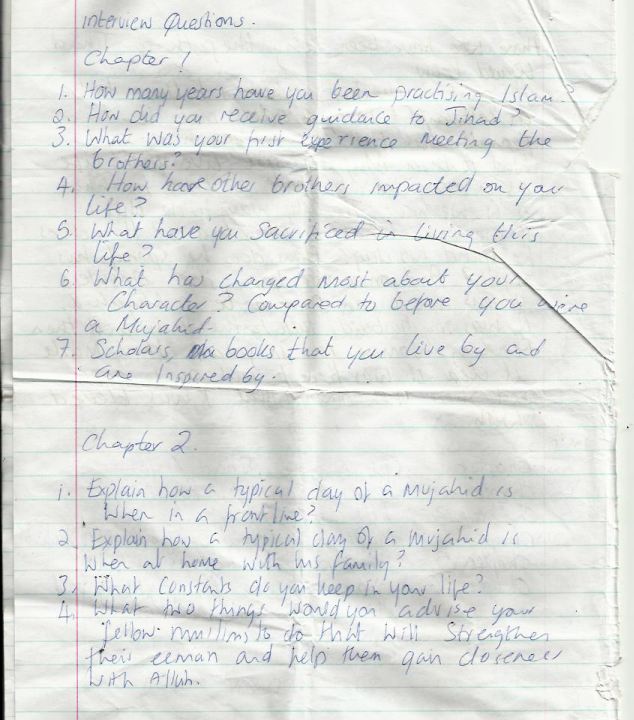 Interview Questions.
Chapter 1
1. How many years have you been practising Islam?
2. How did you receive guidance to Jihad?
3. What was your first experience meeting the
brothers?
4. How have other brothers impacted on your
life?
5. What have you sacrificed in living this
life?
6. What has changed most about your
Character? Compared to before you were
a Mujahid.
7. Scholars, books that you live by and
are Inspired by.
Chapter 2.
1. Explain how a typical day of a mujahid is
when in a frontline?
2. Explain how a typical day of a mujahid is
when at home with his family?
3. What constants do you keep in your life?
4. What two things would you advise your
fellow muslims to do that will strengthen
their eeman and help them gain closeness
with Allah.